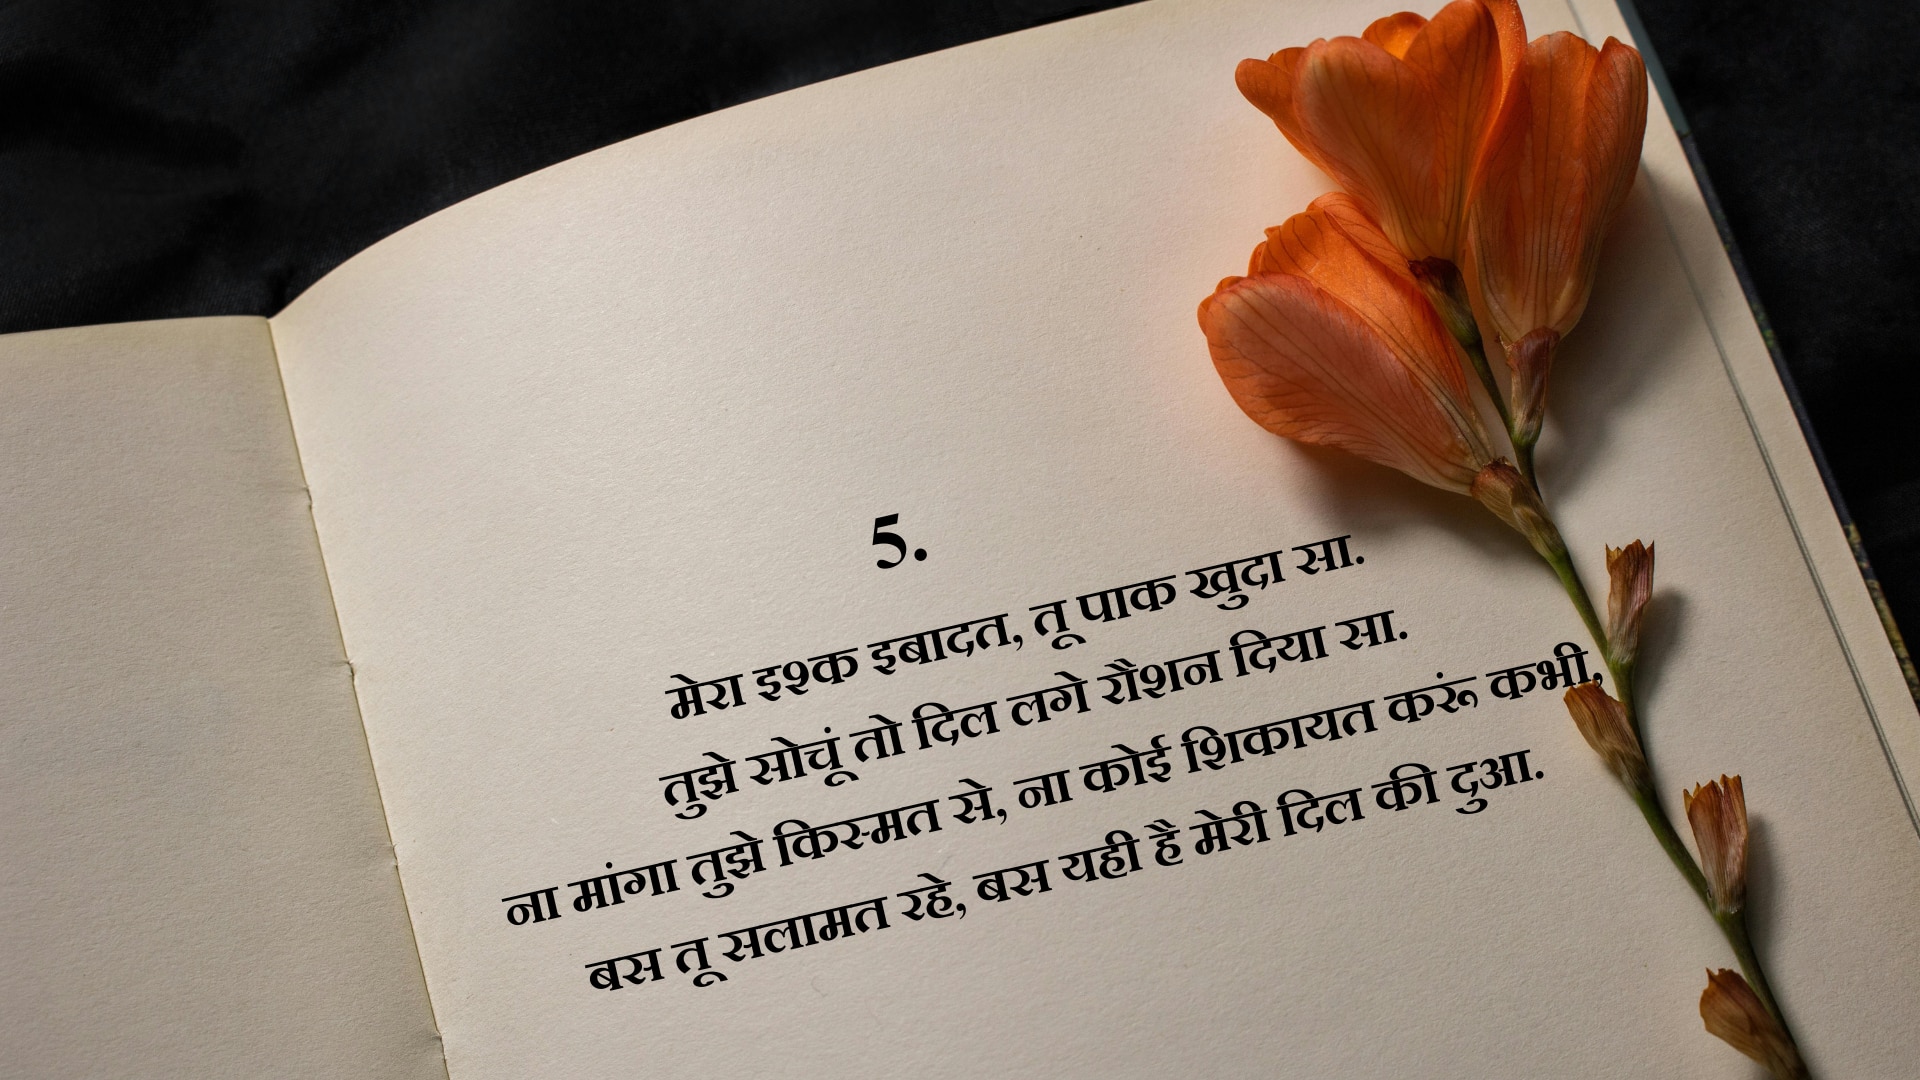 5.
मेरा इश्क इबादत, तू पाक खुदा सा.
तुझे सोचूं तो दिल लगे रौशन दिया सा.
ना मांगा तुझे किस्मत से, ना कोई शिकायत करूं कभी,
बस तू सलामत रहे, बस यही है मेरी दिल की दुआ.